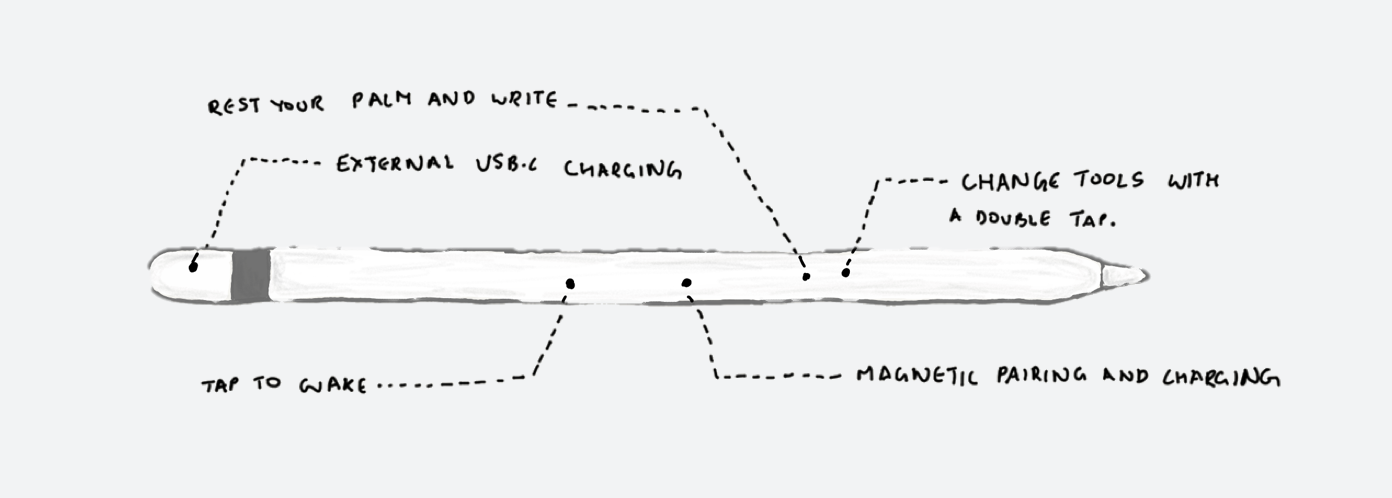 REST YOUR PALM AND WRITE
EXTERNAL USB-C CHARGING
CHANGE TOOLS WITH
A DOUBLE TAP.
TAP TO WAKE
MAGNETIC PAIRING AND CHARGING